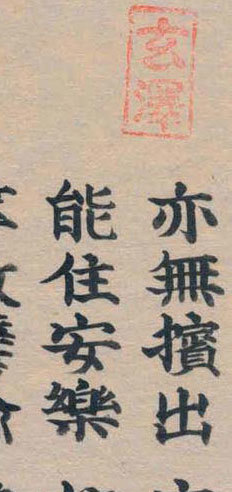 玄澤
亦無擯出
能住安樂